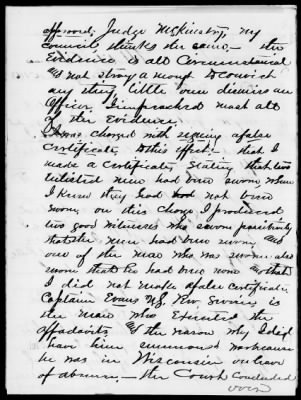 approved; Judge McKinstry, my
council, thinks the same. — the
Evidence is all Circumstancial
and not strong enough to convict
any thing, little own dismiss an
Officer, I impeached most all
of the Evidence.
I was charged with signing a false
Certificate to this effect: — that I
made a Certificate Stating that two
Enlisted men had been sworn, when
I knew they had not been
sworn, on this charge I produced
two good witnesses who swore positively
that the men had been sworn, and
one of the men who was sworn also
swore that he had been sworn and that
I did not make a false Certificate.
Captain Evans U.S. Rev. Service is
the man who Executed the
affadavits and the reason why I did
have him summoned was because
he was in Wisconsin on leave
of absence. — the Court Concluded
over